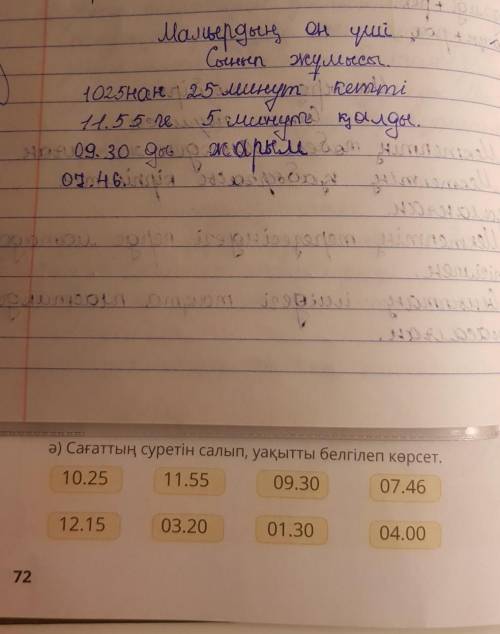 Мамырдың он үші
Сынып жұмысы.
1025нан 25 минут кетті
11.55 ге 5 минут қалды.
09.30 ды жарым
07.46.
ә) Сағаттың суретін салып, уақытты белгілеп көрсет.
10.25 11.55 09.30 07.46
12.15 03.20 01.30 04.00
72